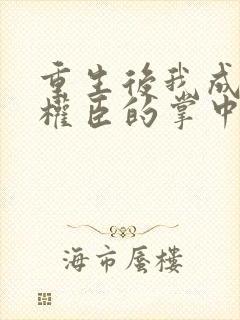 重生後我成
權臣的掌中
海市蜃樓